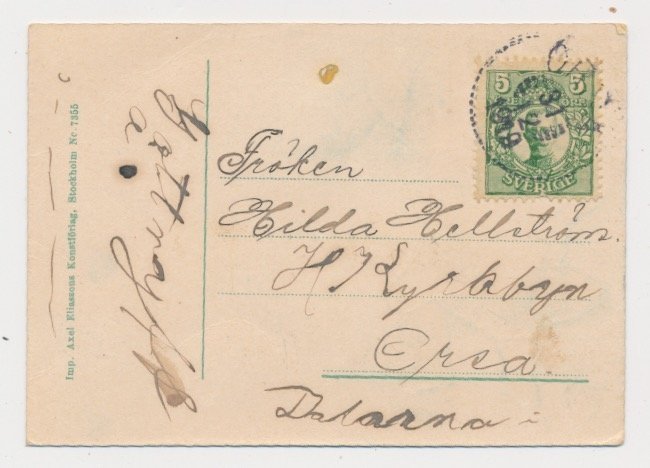 Gott nytt år
Fröken
Hilda Hellström.
H. Kyrkbyn
Orsa.
Dalarna
5 5
SVERIGE
Imp. Axel Eliassons Konstförlag, Stockholm No 7355